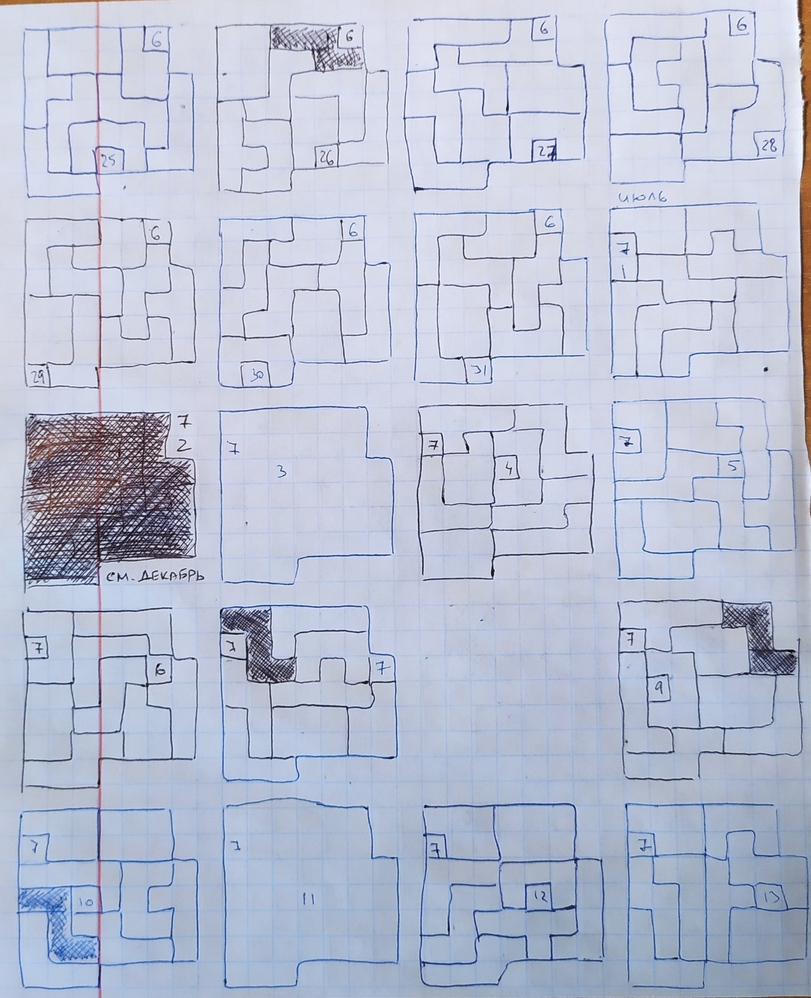 6
25
6
26
6
27
6
28
6
29
6
30
6
31
ИЮЛЬ
7
1
7
2
СМ. ДЕКАБРЬ
7
3
7
4
7
5
7
6
7
7
7
9
7
10
7
11
7
12
7
13